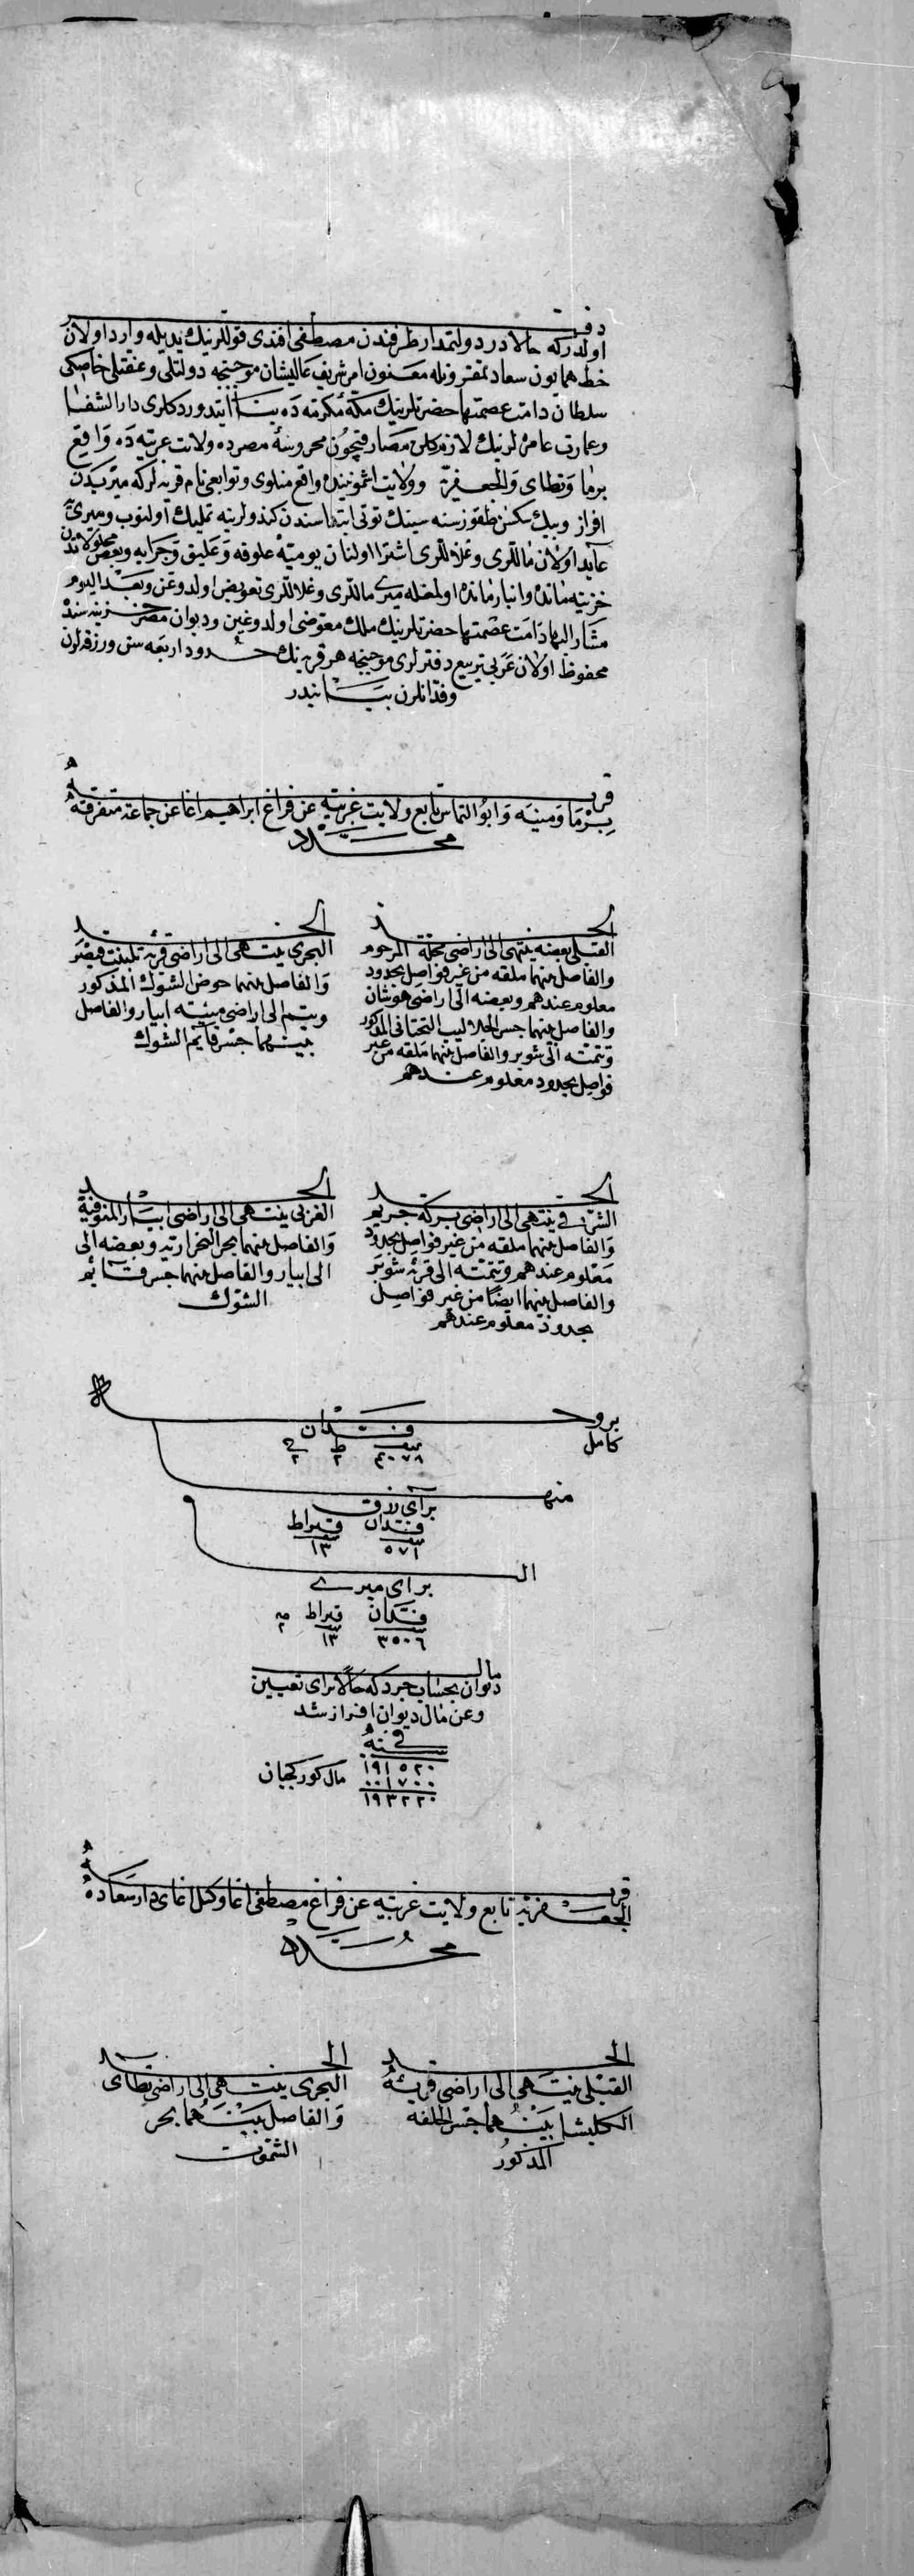 دفتر
اولدر كه حالا در دولتمدار طرفندن مصطفى افندى قوللرينك يديله وارد اولان
خط همايون سعادتمقرونله معنون امر شريف عاليشان موجبنجه دولتلى وعفتلى خاصكى
سلطان دامت عصمتها حضرتلرينك مكهٔ مكرمه ده بنا ايتدوردكلرى دار الشفا
وعمارت عامره لرينك لازم كلن مصارفيچون محروسهٔ مصرده ولايت غربيه ده واقع
برما ونطاى والجعفريه وولايت اشمونينده واقع منلوى وتوابعى نام قريه لر كه ميريدن
افراز وبيك سكسن طقوز سنه سينك توتى ابتداسندن كندولرينه تمليك اولنوب وميرىيه
عايد اولان ماللرى وغلاللرى اشترا اولنان يوميه علوفه وعليق وجرايه وبعض محلولاتدن
خزينه مانده وانبار مانده اولمغله ميرى ماللرى وغلاللرى تعويض اولدوغن وبعد اليوم
مشار اليها دامت عصمتها حضرتلرينك ملك معوضى اولدوغين وديوان مصر خزينه سنده
محفوظ اولان عربى تربيع دفترلرى موجبنجه هر قريه نك حدود اربعه سن ورزقه لرن
وفدانلرن بيانيدر
قريه
برما ومنيه وابو التماس تابع ولايت غربيه عن فراغ ابراهيم اغا عن جماعة متفرقه
محلاد
الحد
القبلى بعضه ينتهى الى اراضى محلة المرحوم
والفاصل بينهما ملقه من غير فواصل بحدود
معلوم عندهم وبعضه الى اراضى هونشان
والفاصل بينهما جسر الجلاليب التحتانى المذكور
وتتمته الى شوبر والفاصل بينهما ملقه من غير
فواصل بحدود معلوم عندهم
الحد
البحرى ينتهى الى اراضى قرية تلبنت قيصر
والفاصل بينهما حوض الشوك المذكور
ويتم الى اراضى ميتيه ابيار والفاصل
بينهما جسر قايم الشوك
الحد
الشرقى ينتهى الى اراضى بركة جريم
والفاصل بينهما ملقه من غير فواصل بحدود
معلوم عندهم وتتمته الى قرية شوبر
والفاصل بينهما ايضا من غير فواصل
بحدود معلوم عندهم
الحد
الغربى ينتهى الى اراضى ابيار المنوفية
والفاصل بينهما بحر وبعضه الى
الى ابيار والفاصل بينهما جسر قائم
الشوك
بروجه
كامل
فدان
٤٠٧٨ ط ٢ ٢
منها
براى رزق
فدان قيراط
٥٧١ ١٣
الـ
براى ميرى
فدان قيراط
٣٥٠٦ ١٣ ٢
مال
ديوان بحساب جرد كه حالا براى تعيين
وعن مال ديوان افراز شد
فى سنة
١٩١٥٢٠
٠٠١٧٠٠ مال كوركجيان
١٩٣٢٢٠
قريه
الجعفريه تابع ولايت غربيه عن فراغ مصطفى اغا وكيل اغاى دار سعاده
محلاد
الحد
القبلى ينتهى الى اراضى قرية
الكليشا بينهما جسر الحلفه
المذكور
الحد
البحرى ينتهى الى اراضى نطاى
والفاصل بينهما بحر
الشتموت